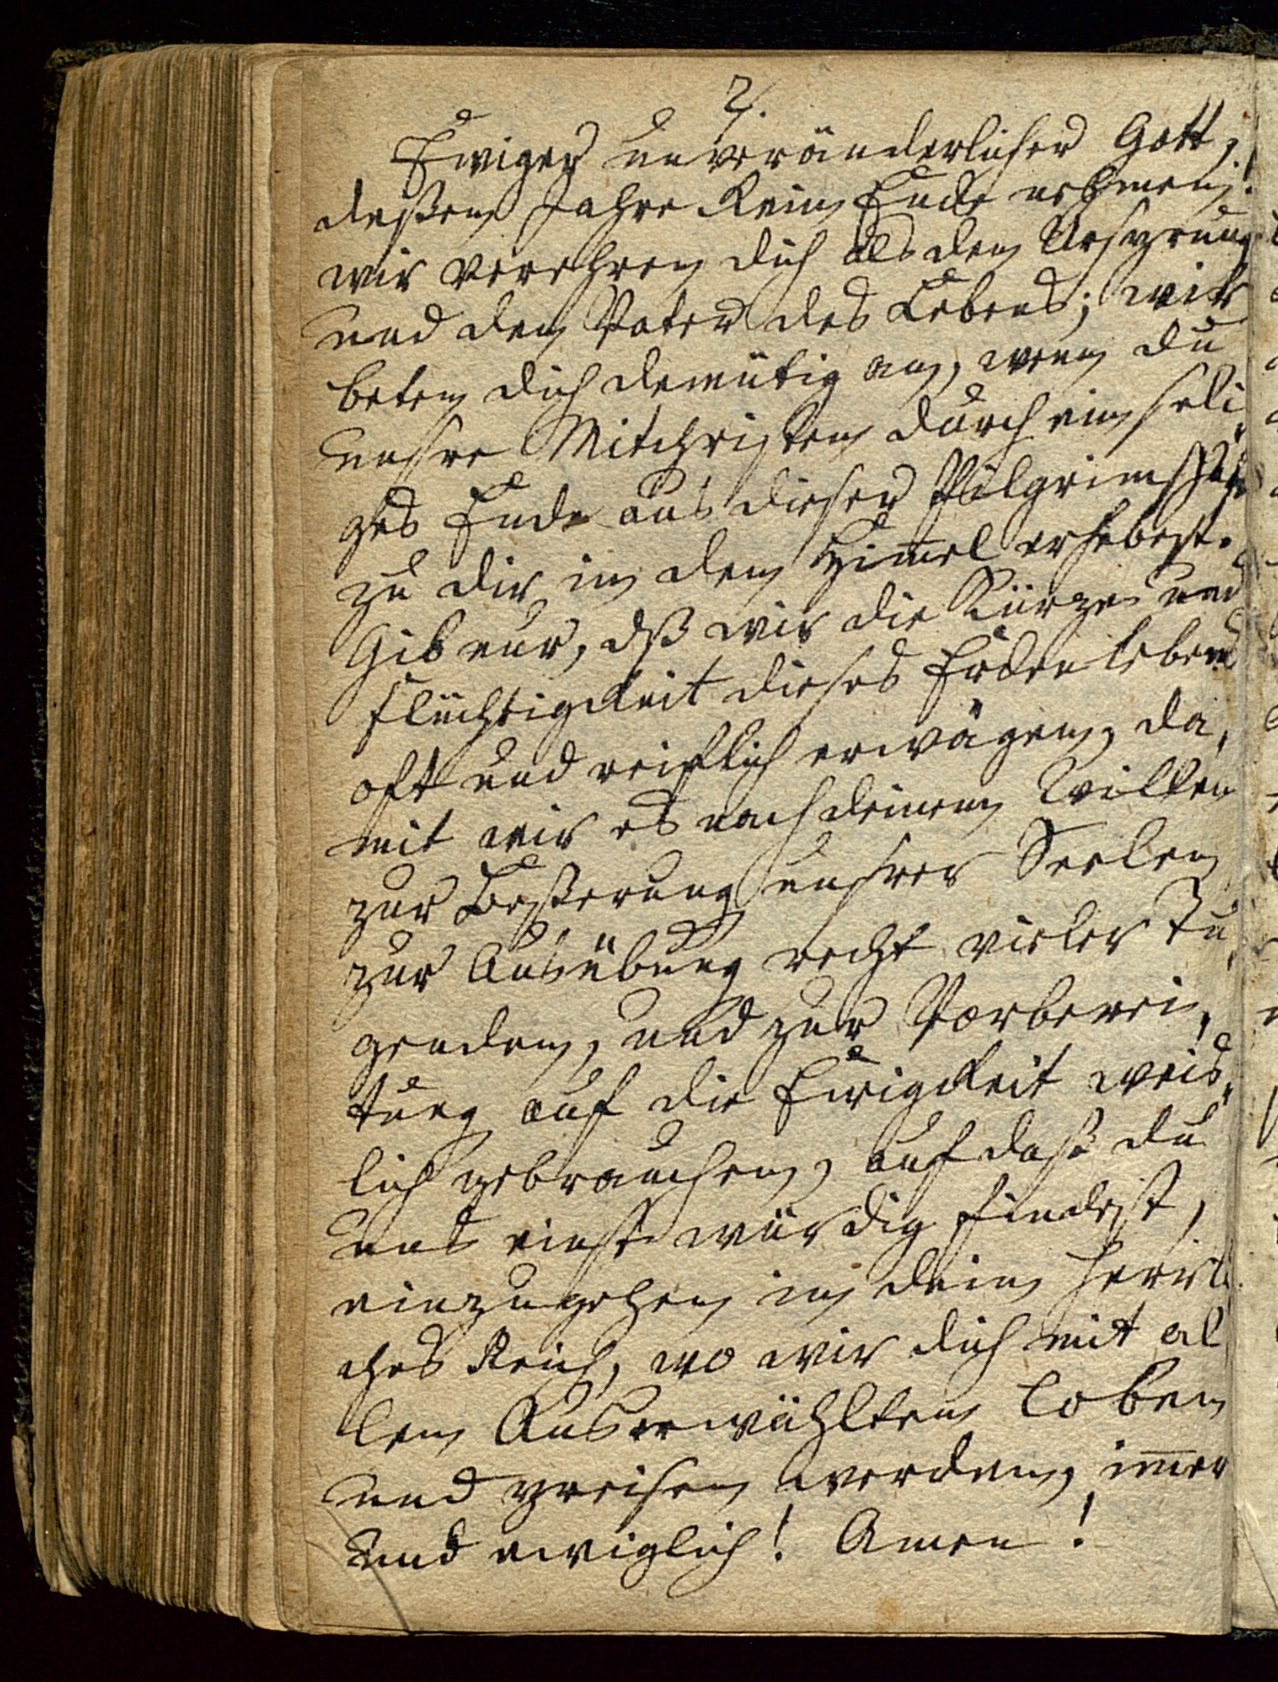 2.
Ewiger unveränderlicher Gott,
deßen Jahre kein Ende nehmen!
wir verehren dich als den Ursprung
und den Vater des Lebens; wir
beten dich demütig an, wenn du
unsre Mitchristen durch ein seli,
ges Ende aus dieser Pilgrimschaft
zu dir in den Himel erhebest.
Gib nur, dß wir die Kürze und
Flüchtigkeit dieses Erdenlebens
oft und reiflich erwägen, da,
mit wir es nach deinem Willen
zur Beßerung unsrer Seelen
zur Ausübung recht vieler Tu,
genden, und zur Vorberei,
tung auf die Ewigkeit weis,
lich gebrauchen, auf daß du
uns einst würdig findest,
einzugehen in dein herrli,
ches Reich, wo wir dich mit al
len Auserwählten loben
und preisen werden, imer
und ewiglich! Amen!